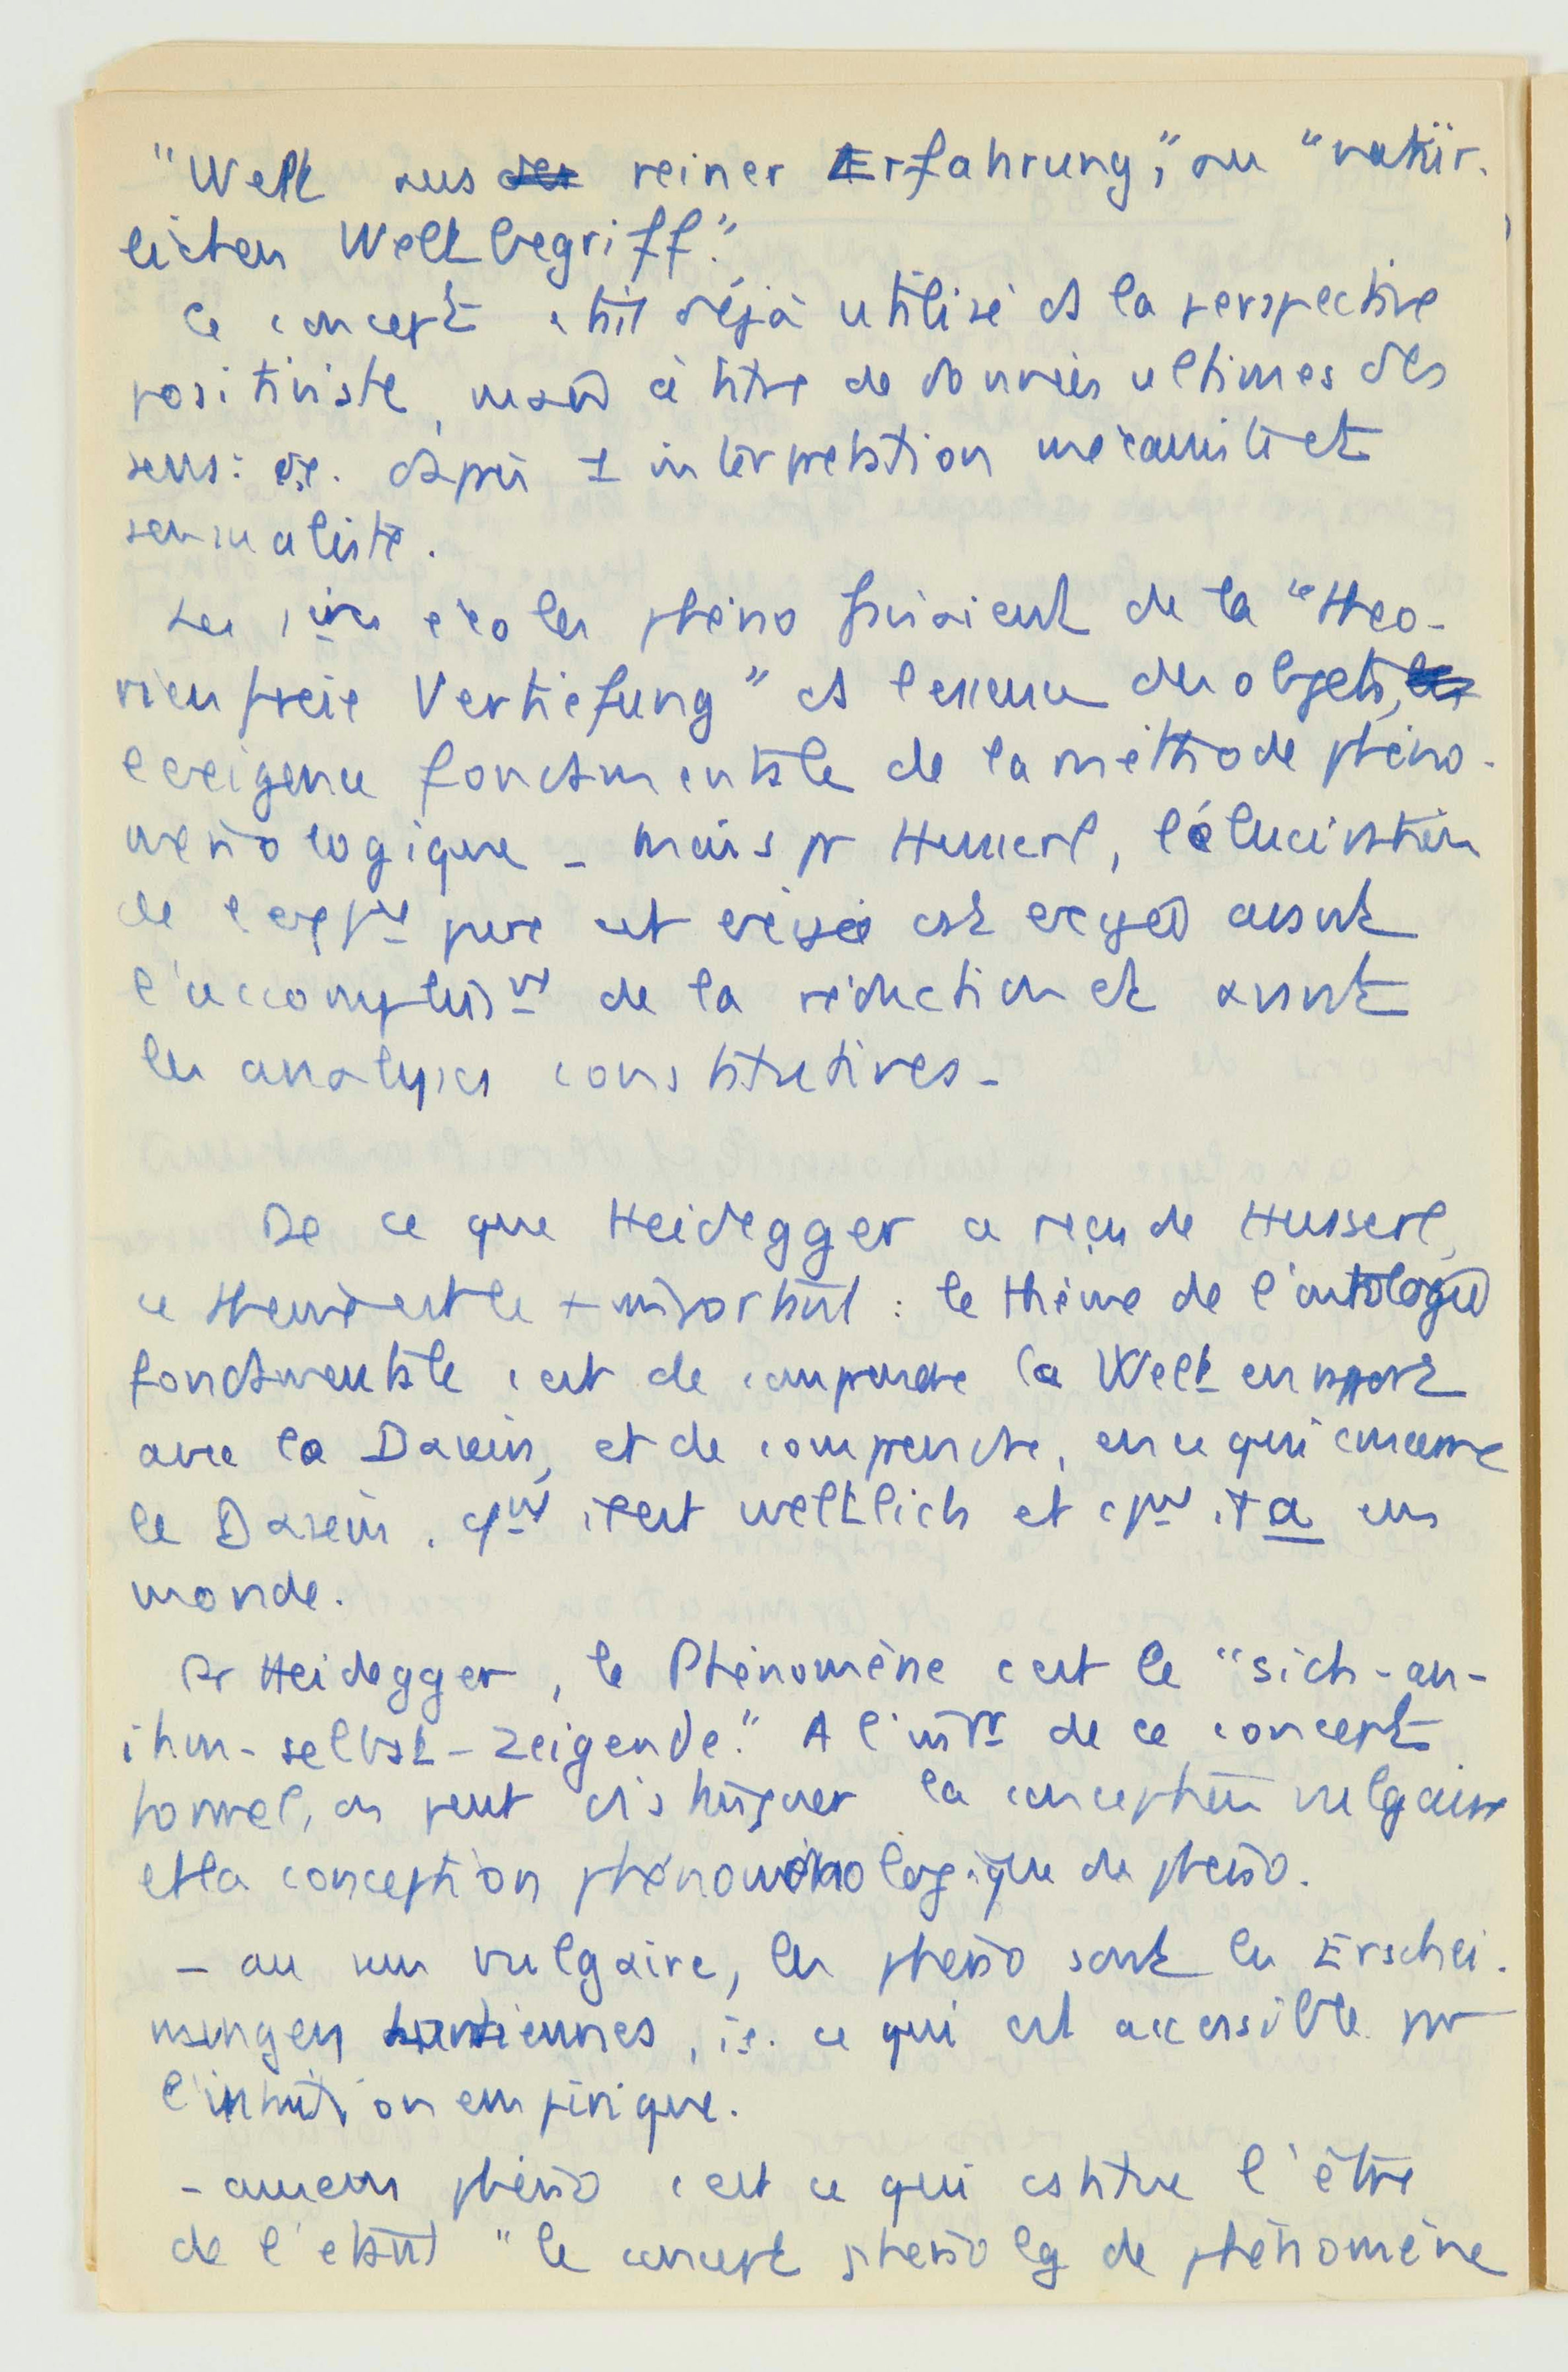 "Welt aus der reiner Erfahrung", ou "natür-
lichen Weltbegriff".
Ce concept était déjà utilisé ds la perspective
positiviste, mais à titre de données ultimes des
sens: i.e. d'après 1 interprétation mécaniste et
sensualiste.
Les 1ères écoles phéno faisaient de la "theo-
rienfreie Vertiefung" ds l'essence des objets,
l'exigence fondamentale de la méthode phéno-
ménologique - mais pr Husserl, l'élucidation
de l'expce pure est exigée avant
l'accomplisst de la réduction et avant
les analyses constitutives -
De ce que Heidegger a reçu de Husserl,
ce thème est le + important : le thème de l'ontologie
fondamentale c'est de comprendre la Welt en rapport
avec le Dasein, et de comprendre, en ce qui concerne
le Dasein, cpmt il est weltlich et cpmt il a un
monde.
Pr Heidegger, le Phénomène c'est le "sich-an-
ihm-selbst-zeigende." A l'intr de ce concept
formel, on peut distinguer la conception vulgaire
et la conception phénoménologique de phéno.
- au sens vulgaire, les phéno sont les Erschei-
nungen kantiennes, i.e. ce qui est accessible par
l'intuition empirique.
- au sens phéno c'est ce qui cstitue l'être
de l'étant "le concept phénolg de phénomène